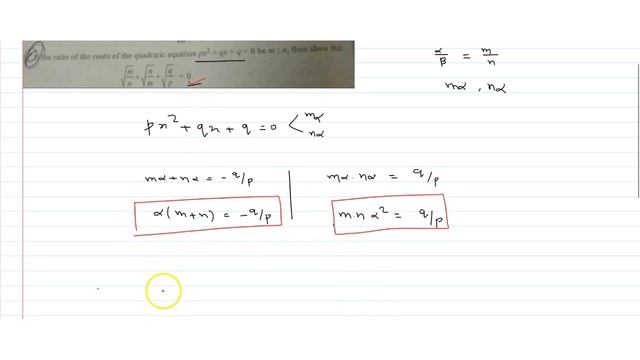 the ratio of the roots of the quadratic equation px² + qx + q = 0 be m : n, then show that
√(m/n) + √(n/m) + √(q/p) = 0.
α/β = m/n
mα , nα
px² + qx + q = 0 < mα
nα
mα + nα = -q/p
α(m+n) = -q/p
mα . nα = q/p
m.n α² = q/p